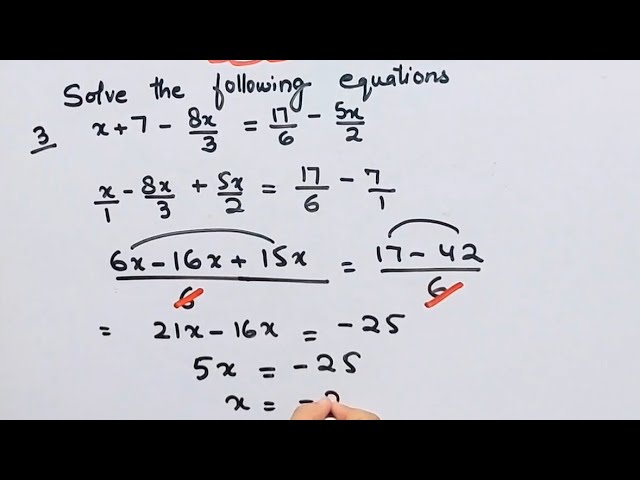 Solve the following equations
3 x + 7 - 8x/3 = 17/6 - 5x/2
x/1 - 8x/3 + 5x/2 = 17/6 - 7/1
6x - 16x + 15x / 6 = 17 - 42 / 6
= 21x - 16x = -25
5x = -25
x = -